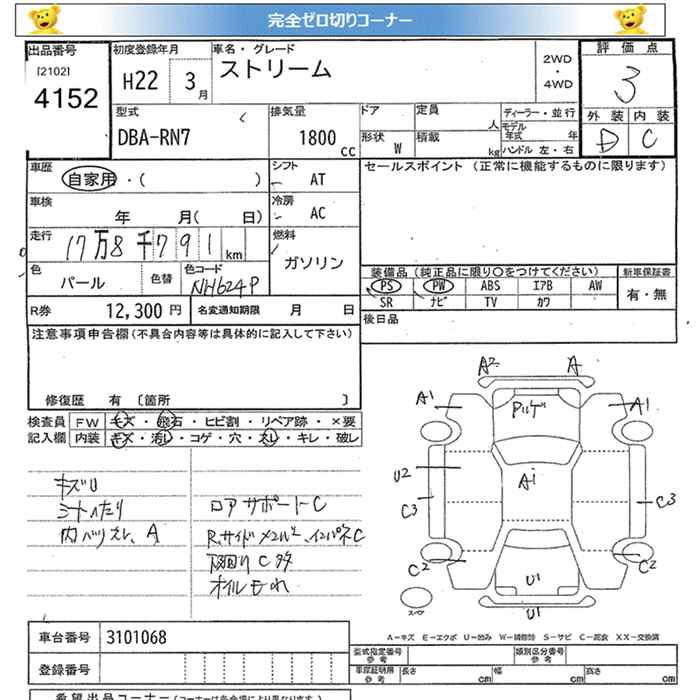 完全ゼロ切りコーナー
出品番号 初度登録年月 車名・グレード 評価点
[2102] H22 3月 ストリーム 2WD・4WD 3
4152
型式 排気量 ドア 定員 人 ディーラー・並行 外装 内装
DBA-RN7 1800cc モデル年式 年 D C
形状 W 積載 kg ハンドル 左・右
車歴 シフト セールスポイント (正常に機能するものに限ります)
自家用・( ) AT
車検 年 月( 日) 冷房 AC
走行 17万8千791km 燃料 ガソリン
色 パール 色替 色コード NH624P
装備品 (純正品に限り○をつけてください) 新車保証書
PS PW ABS エアB AW 有・無
SR ナビ TV カワ
R券 12,300円 名変通知期限 月 日 後日品
注意事項申告欄(不具合内容等は具体的に記入して下さい)
修復歴 有 〔箇所 〕
検査員 FW キズ・飛石・ヒビ割・リペア跡・×要
記入欄 内装 キズ・汚レ・コゲ・穴・スレ・キレ・破レ
キズU
シートへたり ロアサポートC
内バリスレ、A R,サイドメンバー、インパネC
下回りC多
オイルもれ
A2 A
A1 A1
U2 Ai
C3 C3
C2 C2
U1
スペア U1
A-キズ E-エクボ U-凹み W-補修跡 S-サビ C-腐食 XX-交換済
車台番号 3101068 型式指定番号 参考 類別区分番号 参考
登録番号 車庫証明用 参考 長さ cm 幅 cm 高さ cm
希望出品コーナー